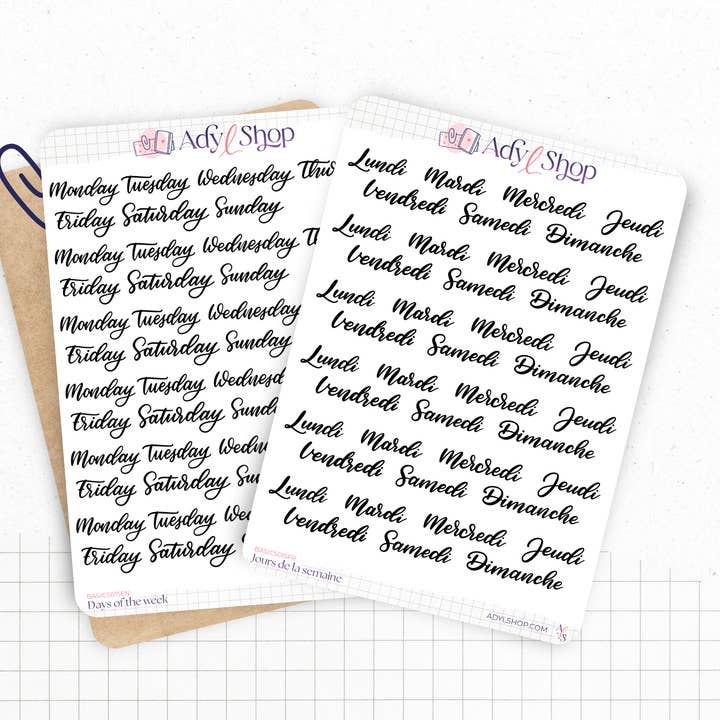 Ady l Shop
Monday Tuesday Wednesday Thur
Friday Saturday Sunday
Monday Tuesday Wednesday Th
Friday Saturday Sunday
Monday Tuesday Wednesday
Friday Saturday Sunday
Monday Tuesday Wednesd
Friday Saturday Sund
Monday Tuesday Wedn
Friday Saturday Su
Monday Tuesday We
Friday Saturday S
BASICS015EN
Days of the week
Ady l Shop
Lundi Mardi Mercredi Jeudi
Vendredi Samedi Dimanche
Lundi Mardi Mercredi Jeudi
Vendredi Samedi Dimanche
Lundi Mardi Mercredi Jeudi
Vendredi Samedi Dimanche
Lundi Mardi Mercredi Jeudi
Vendredi Samedi Dimanche
Lundi Mardi Mercredi Jeudi
Vendredi Samedi Dimanche
Lundi Mardi Mercredi Jeudi
Vendredi Samedi Dimanche
BASICS015FR
Jours de la semaine
ADYLSHOP.COM